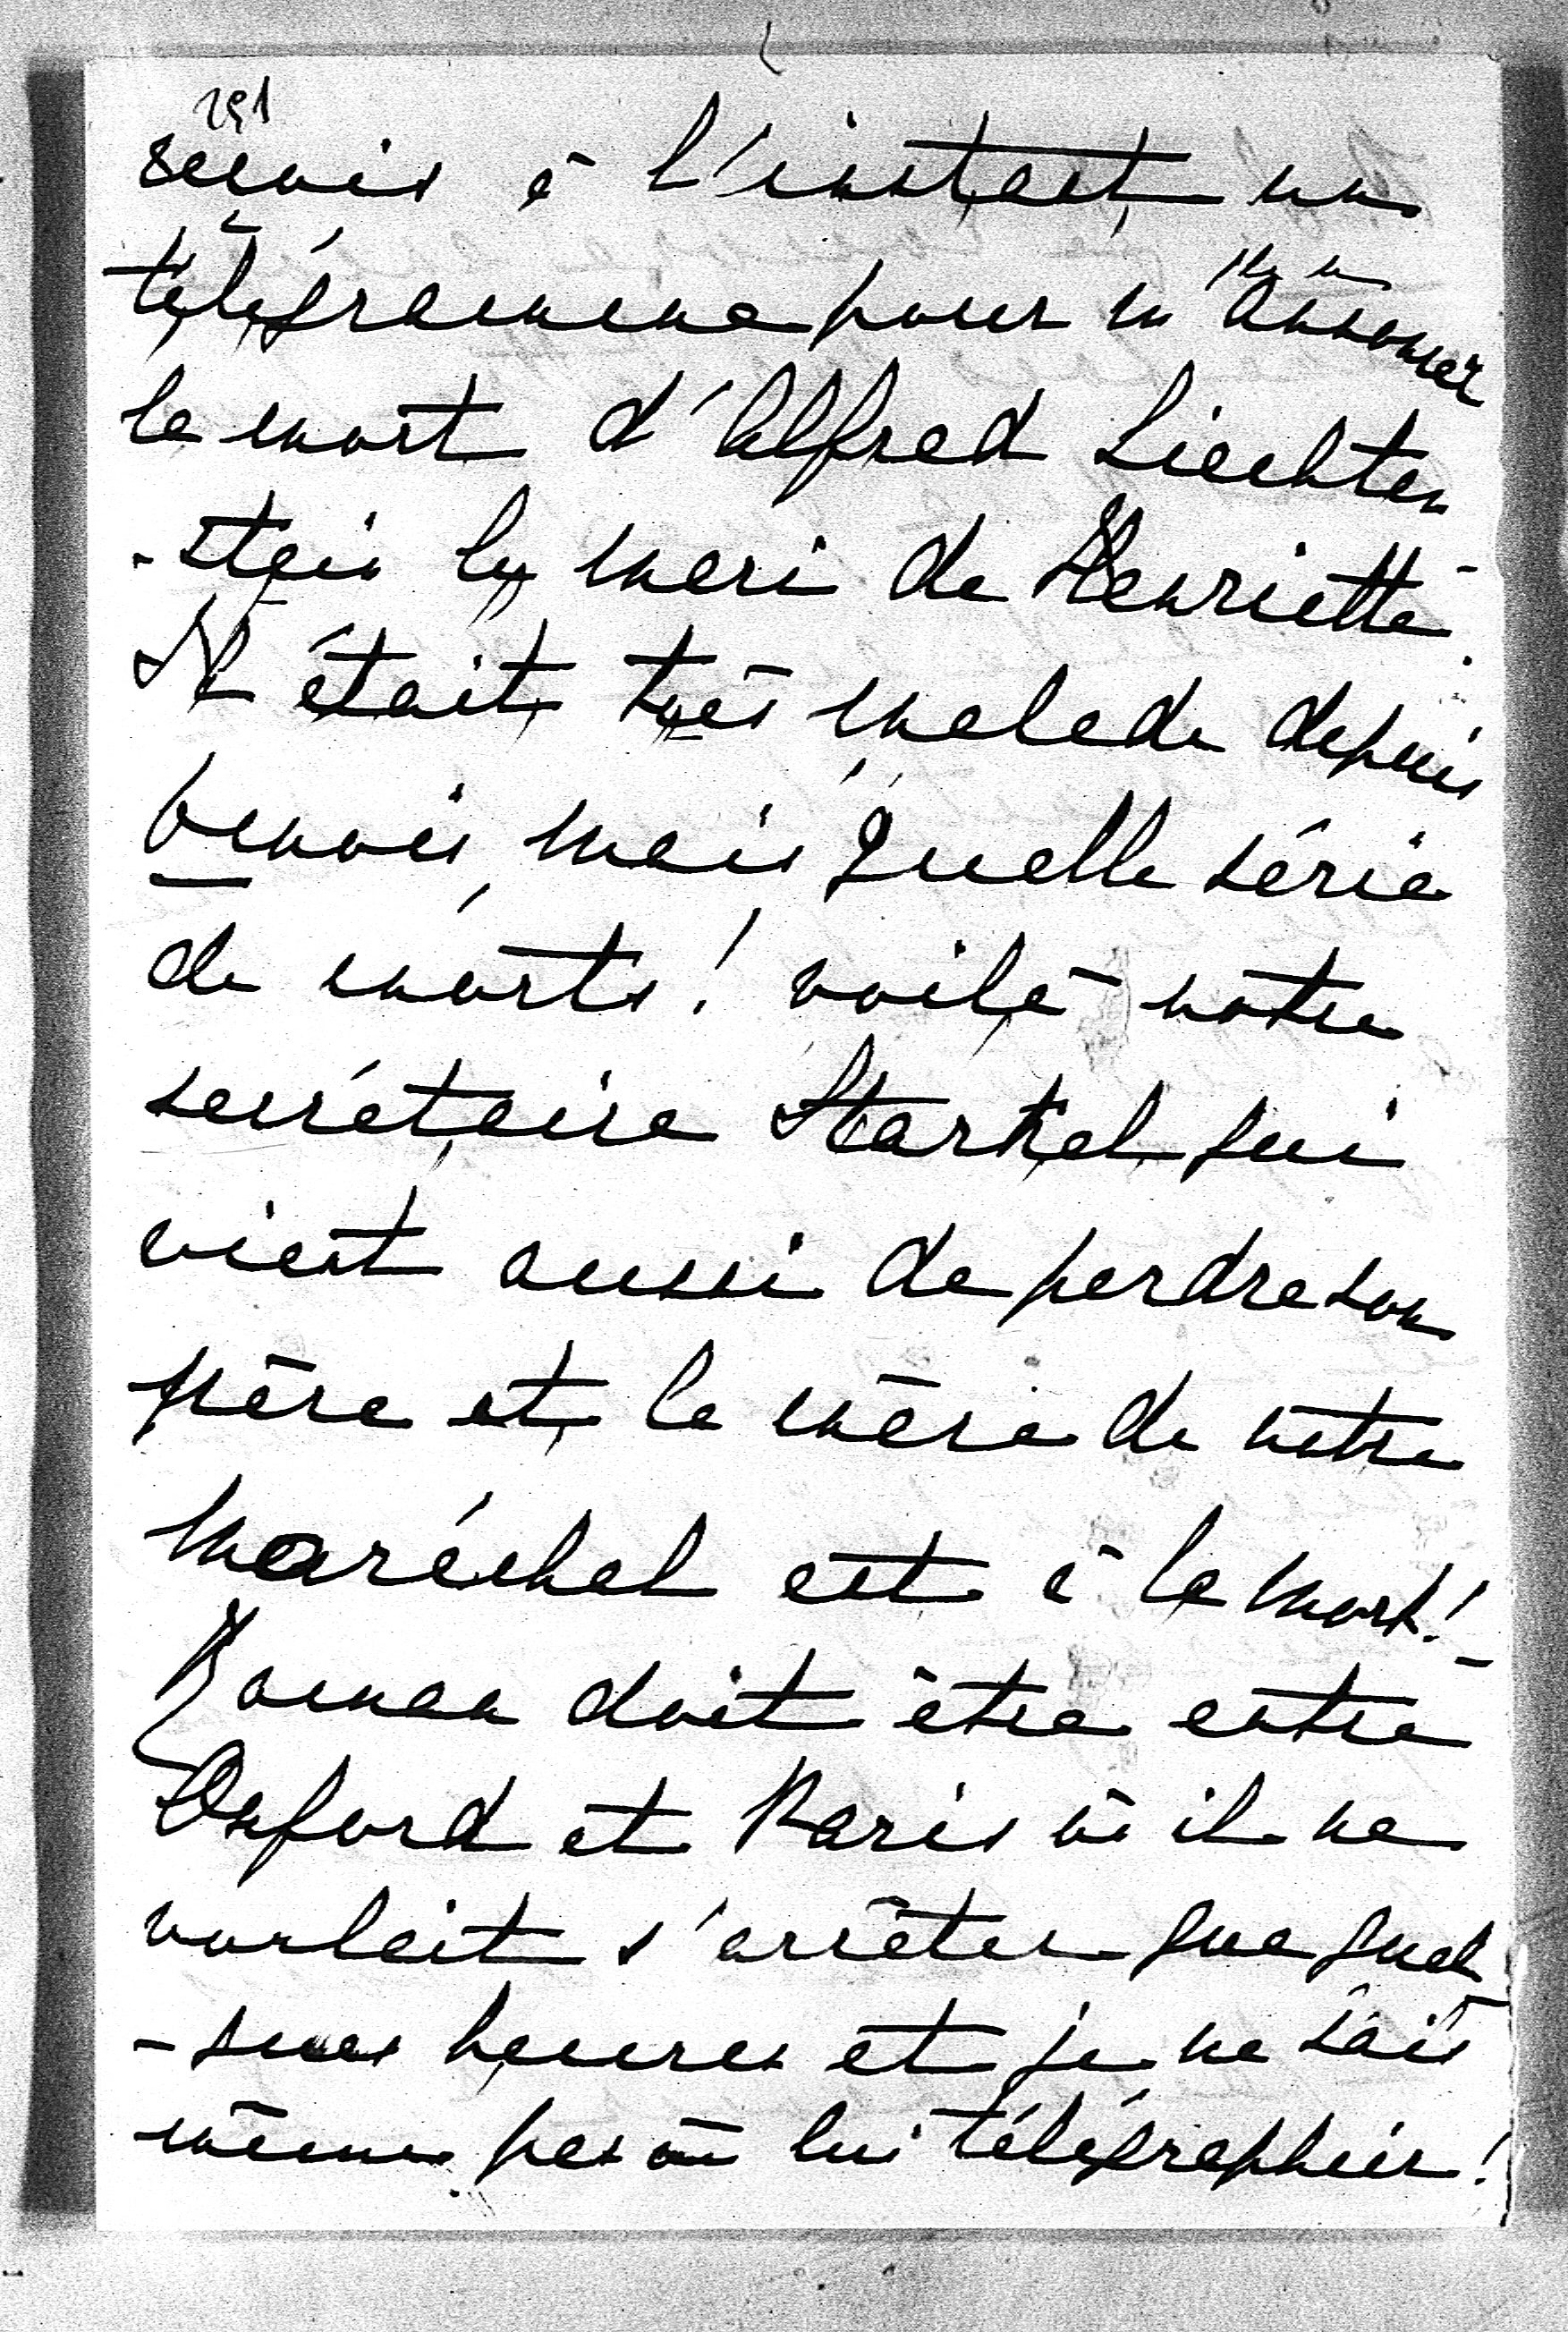 291
reçois à l'instant un
télégramme pour m'annoncer
la mort d'Alfred Liechten
-stein le mari de Henriette.
Il était très malade depuis
6 mois, mais quelle série
de morts! voilà notre
secrétaire Starkel qui
vient aussi de perdre son
père et la mère de notre
maréchal est à la mort!
Roman doit être entre
Oxford et Paris où il ne
voulait s'arrêter que quel
-ques heures et je ne sais
même pas où lui télégraphier!